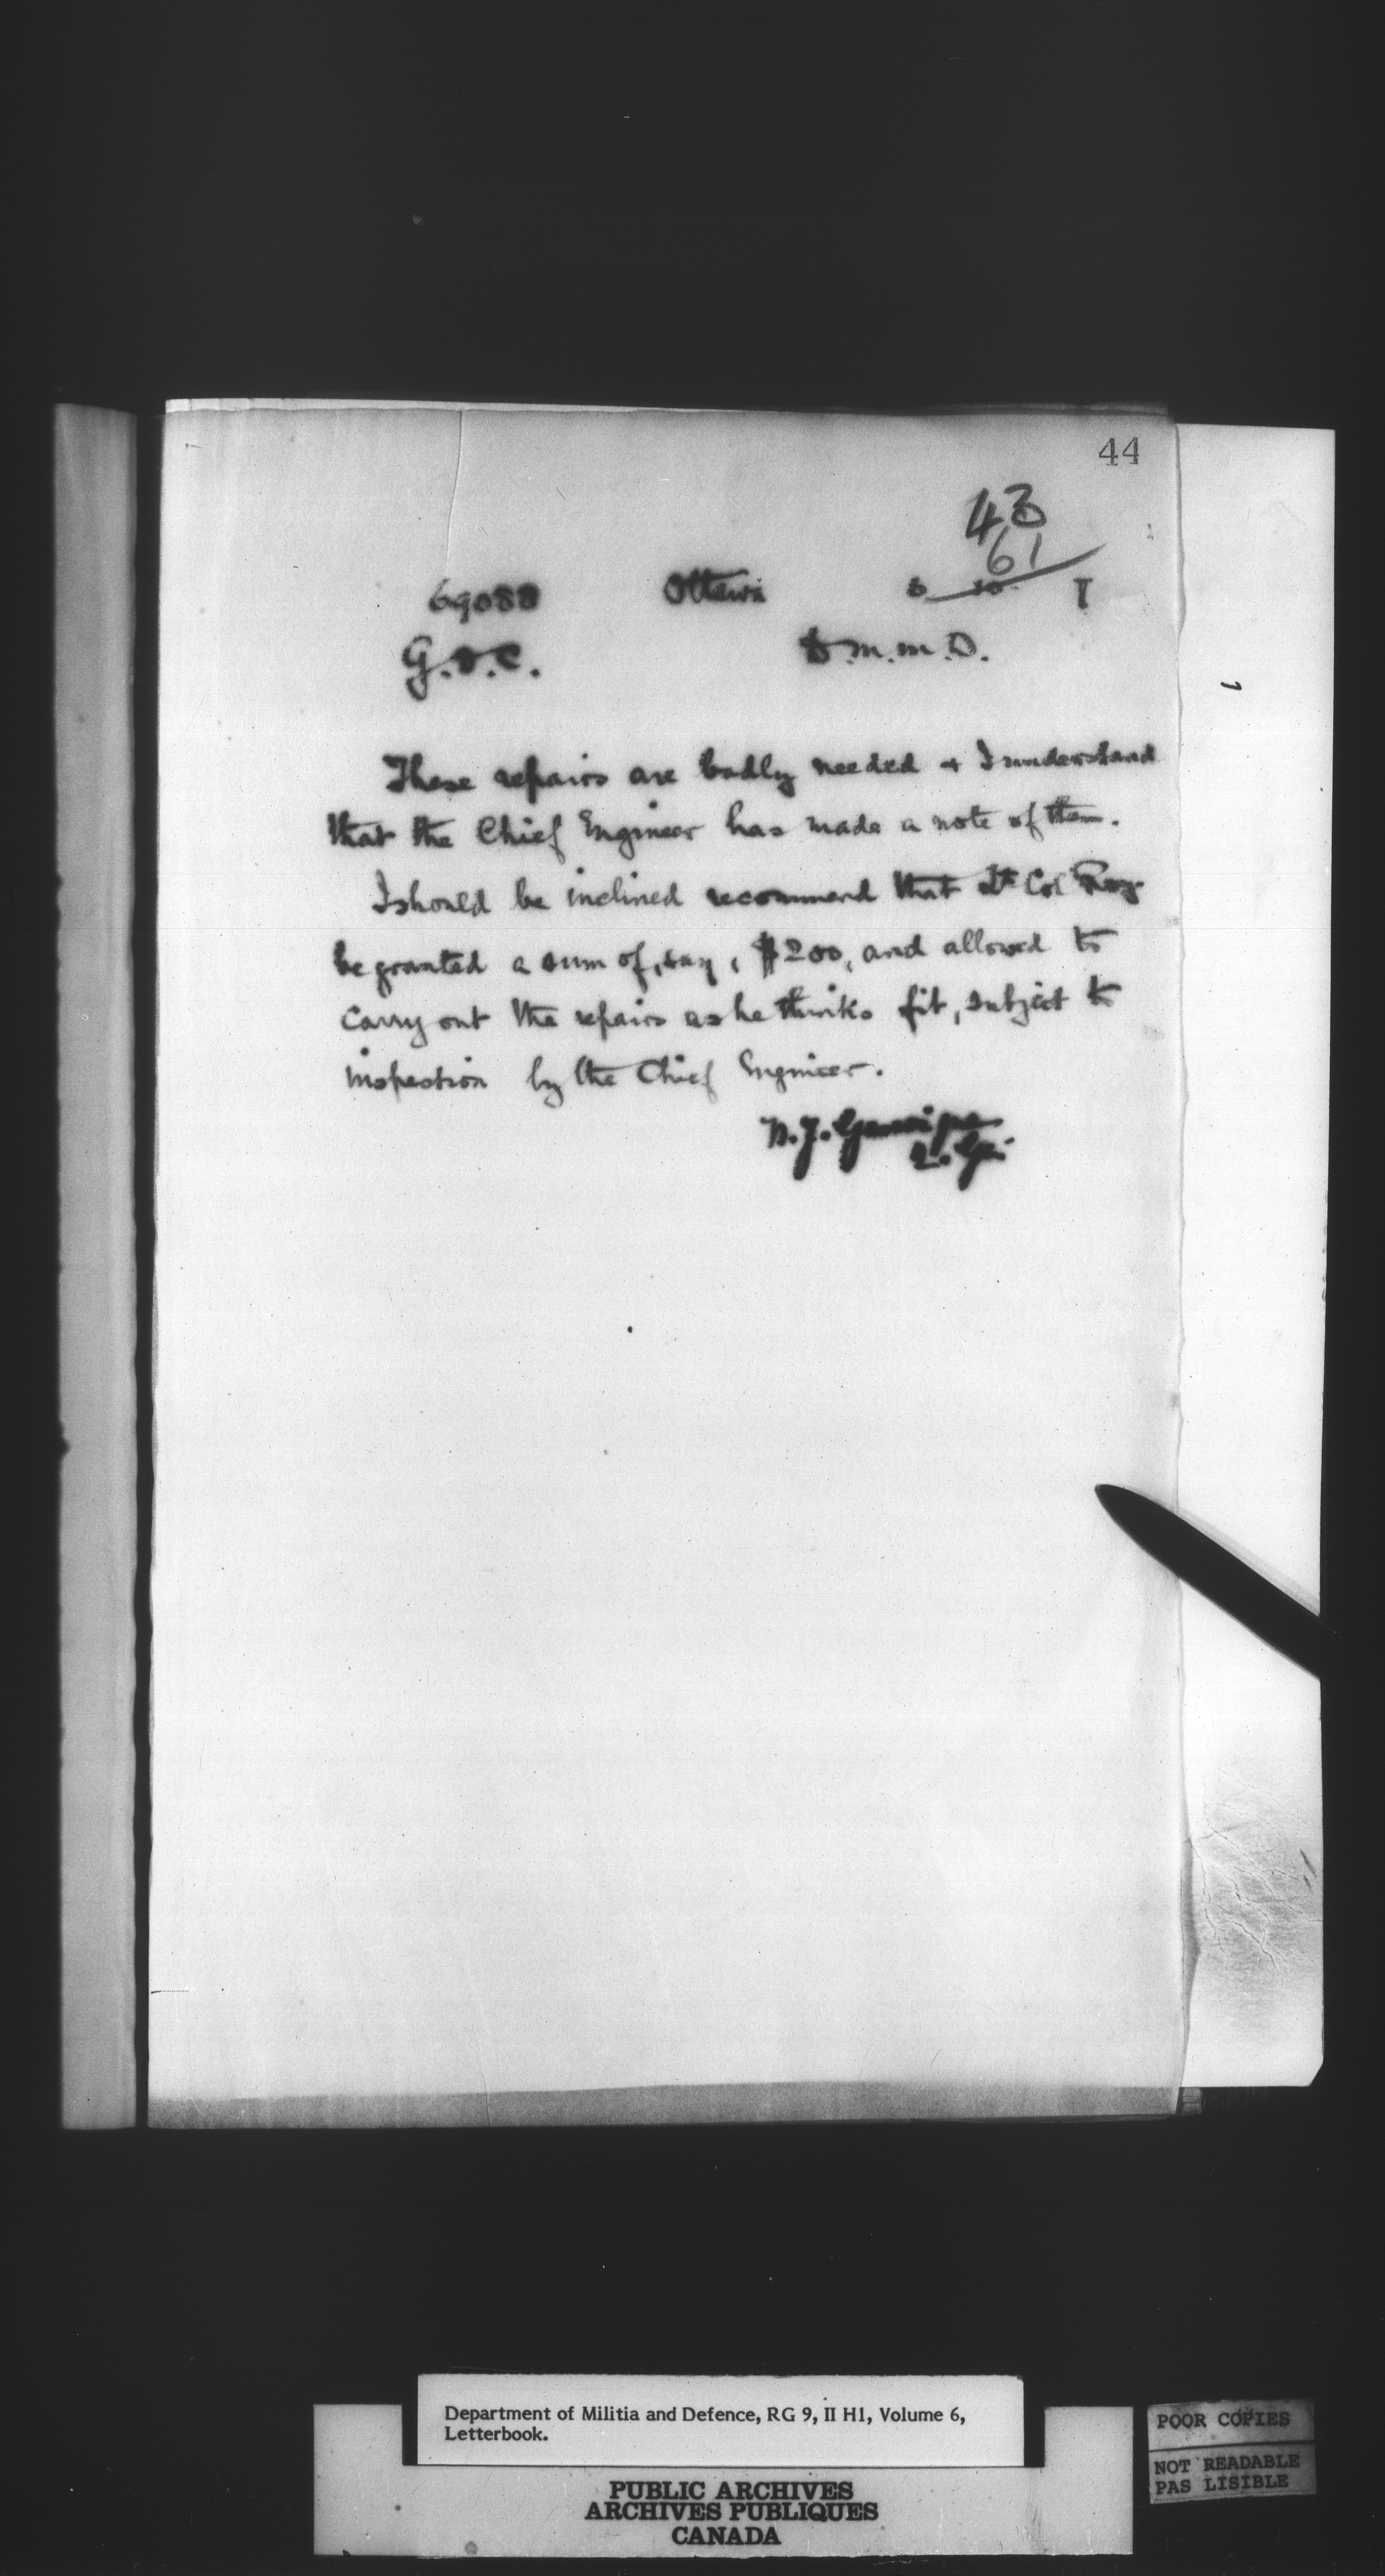 44
43
61
69088 Ottawa
G.O.C. D.M.M.D.
These repairs are badly needed + I understand
that the Chief Engineer has made a note of them.
I should be inclined recommend that Lt Col Roy
be granted a sum of, say, $200, and allowed to
carry out the repairs as he thinks fit, subject to
inspection by the Chief Engineer.
Department of Militia and Defence, RG 9, II H1, Volume 6,
Letterbook.
PUBLIC ARCHIVES
ARCHIVES PUBLIQUES
CANADA
POOR COPIES
NOT READABLE
PAS LISIBLE